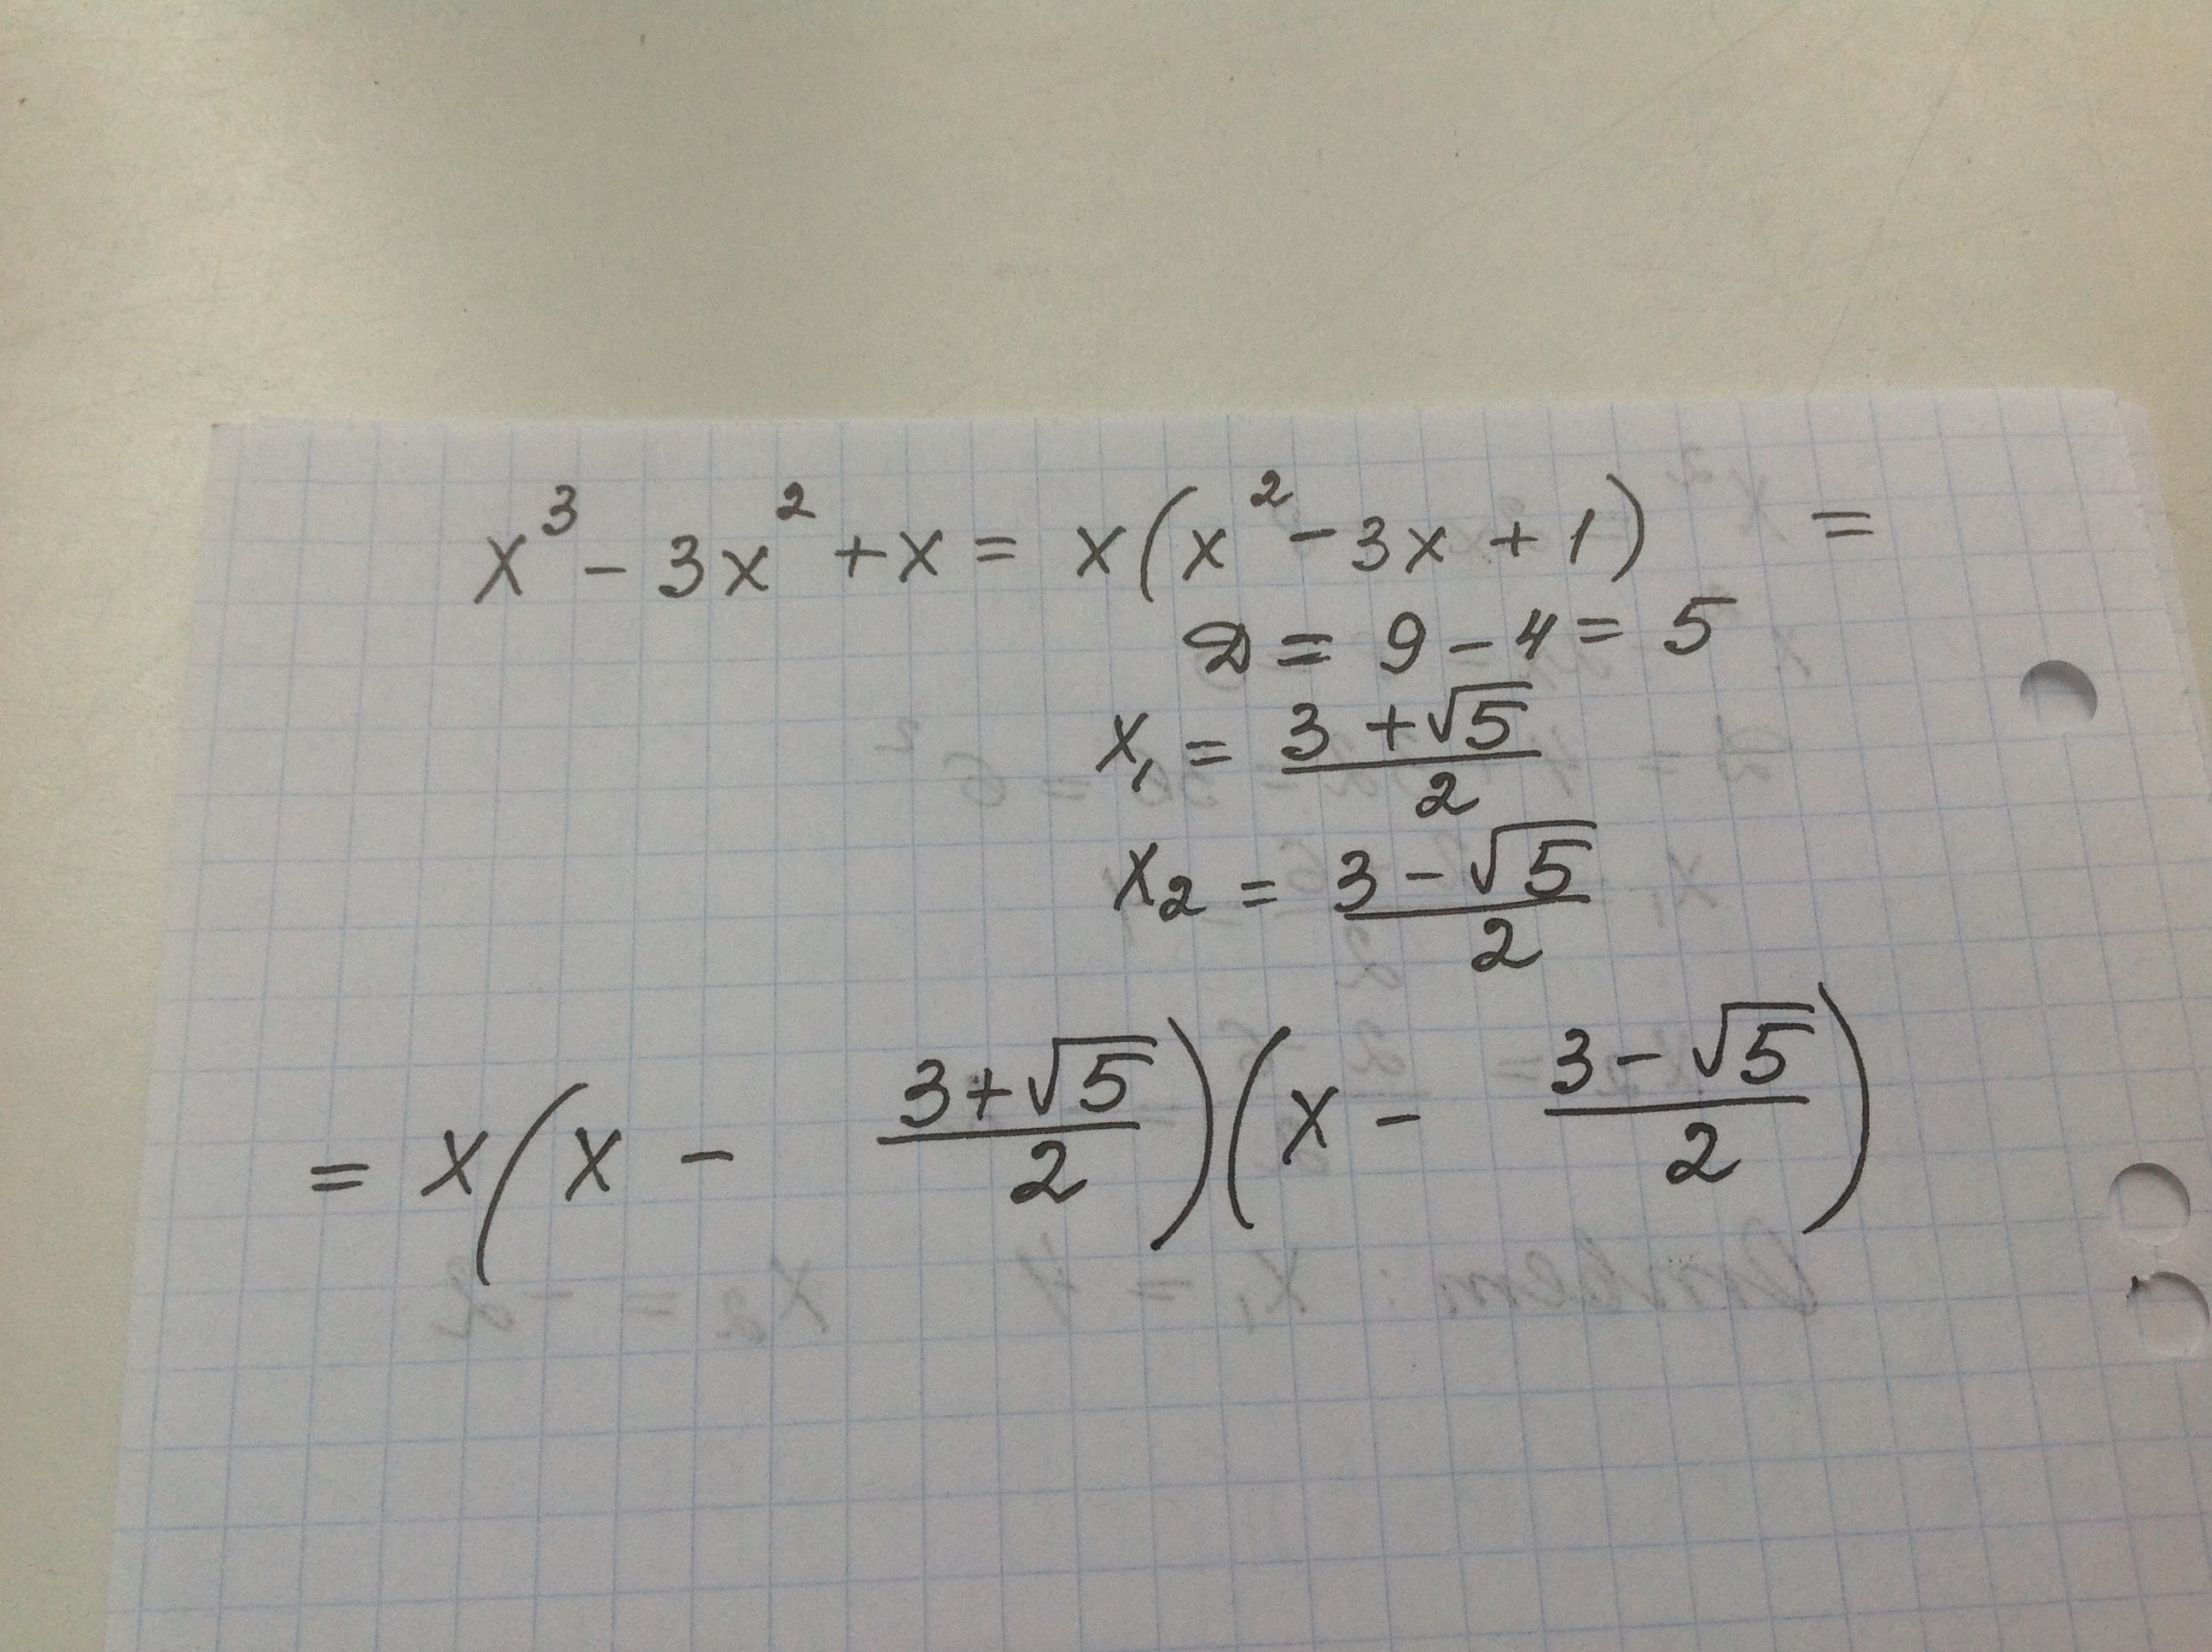 x³ - 3x² + x = x(x² - 3x + 1) =
D = 9 - 4 = 5
x₁ = (3 + √5)/2
x₂ = (3 - √5)/2
= x(x - (3 + √5)/2)(x - (3 - √5)/2)